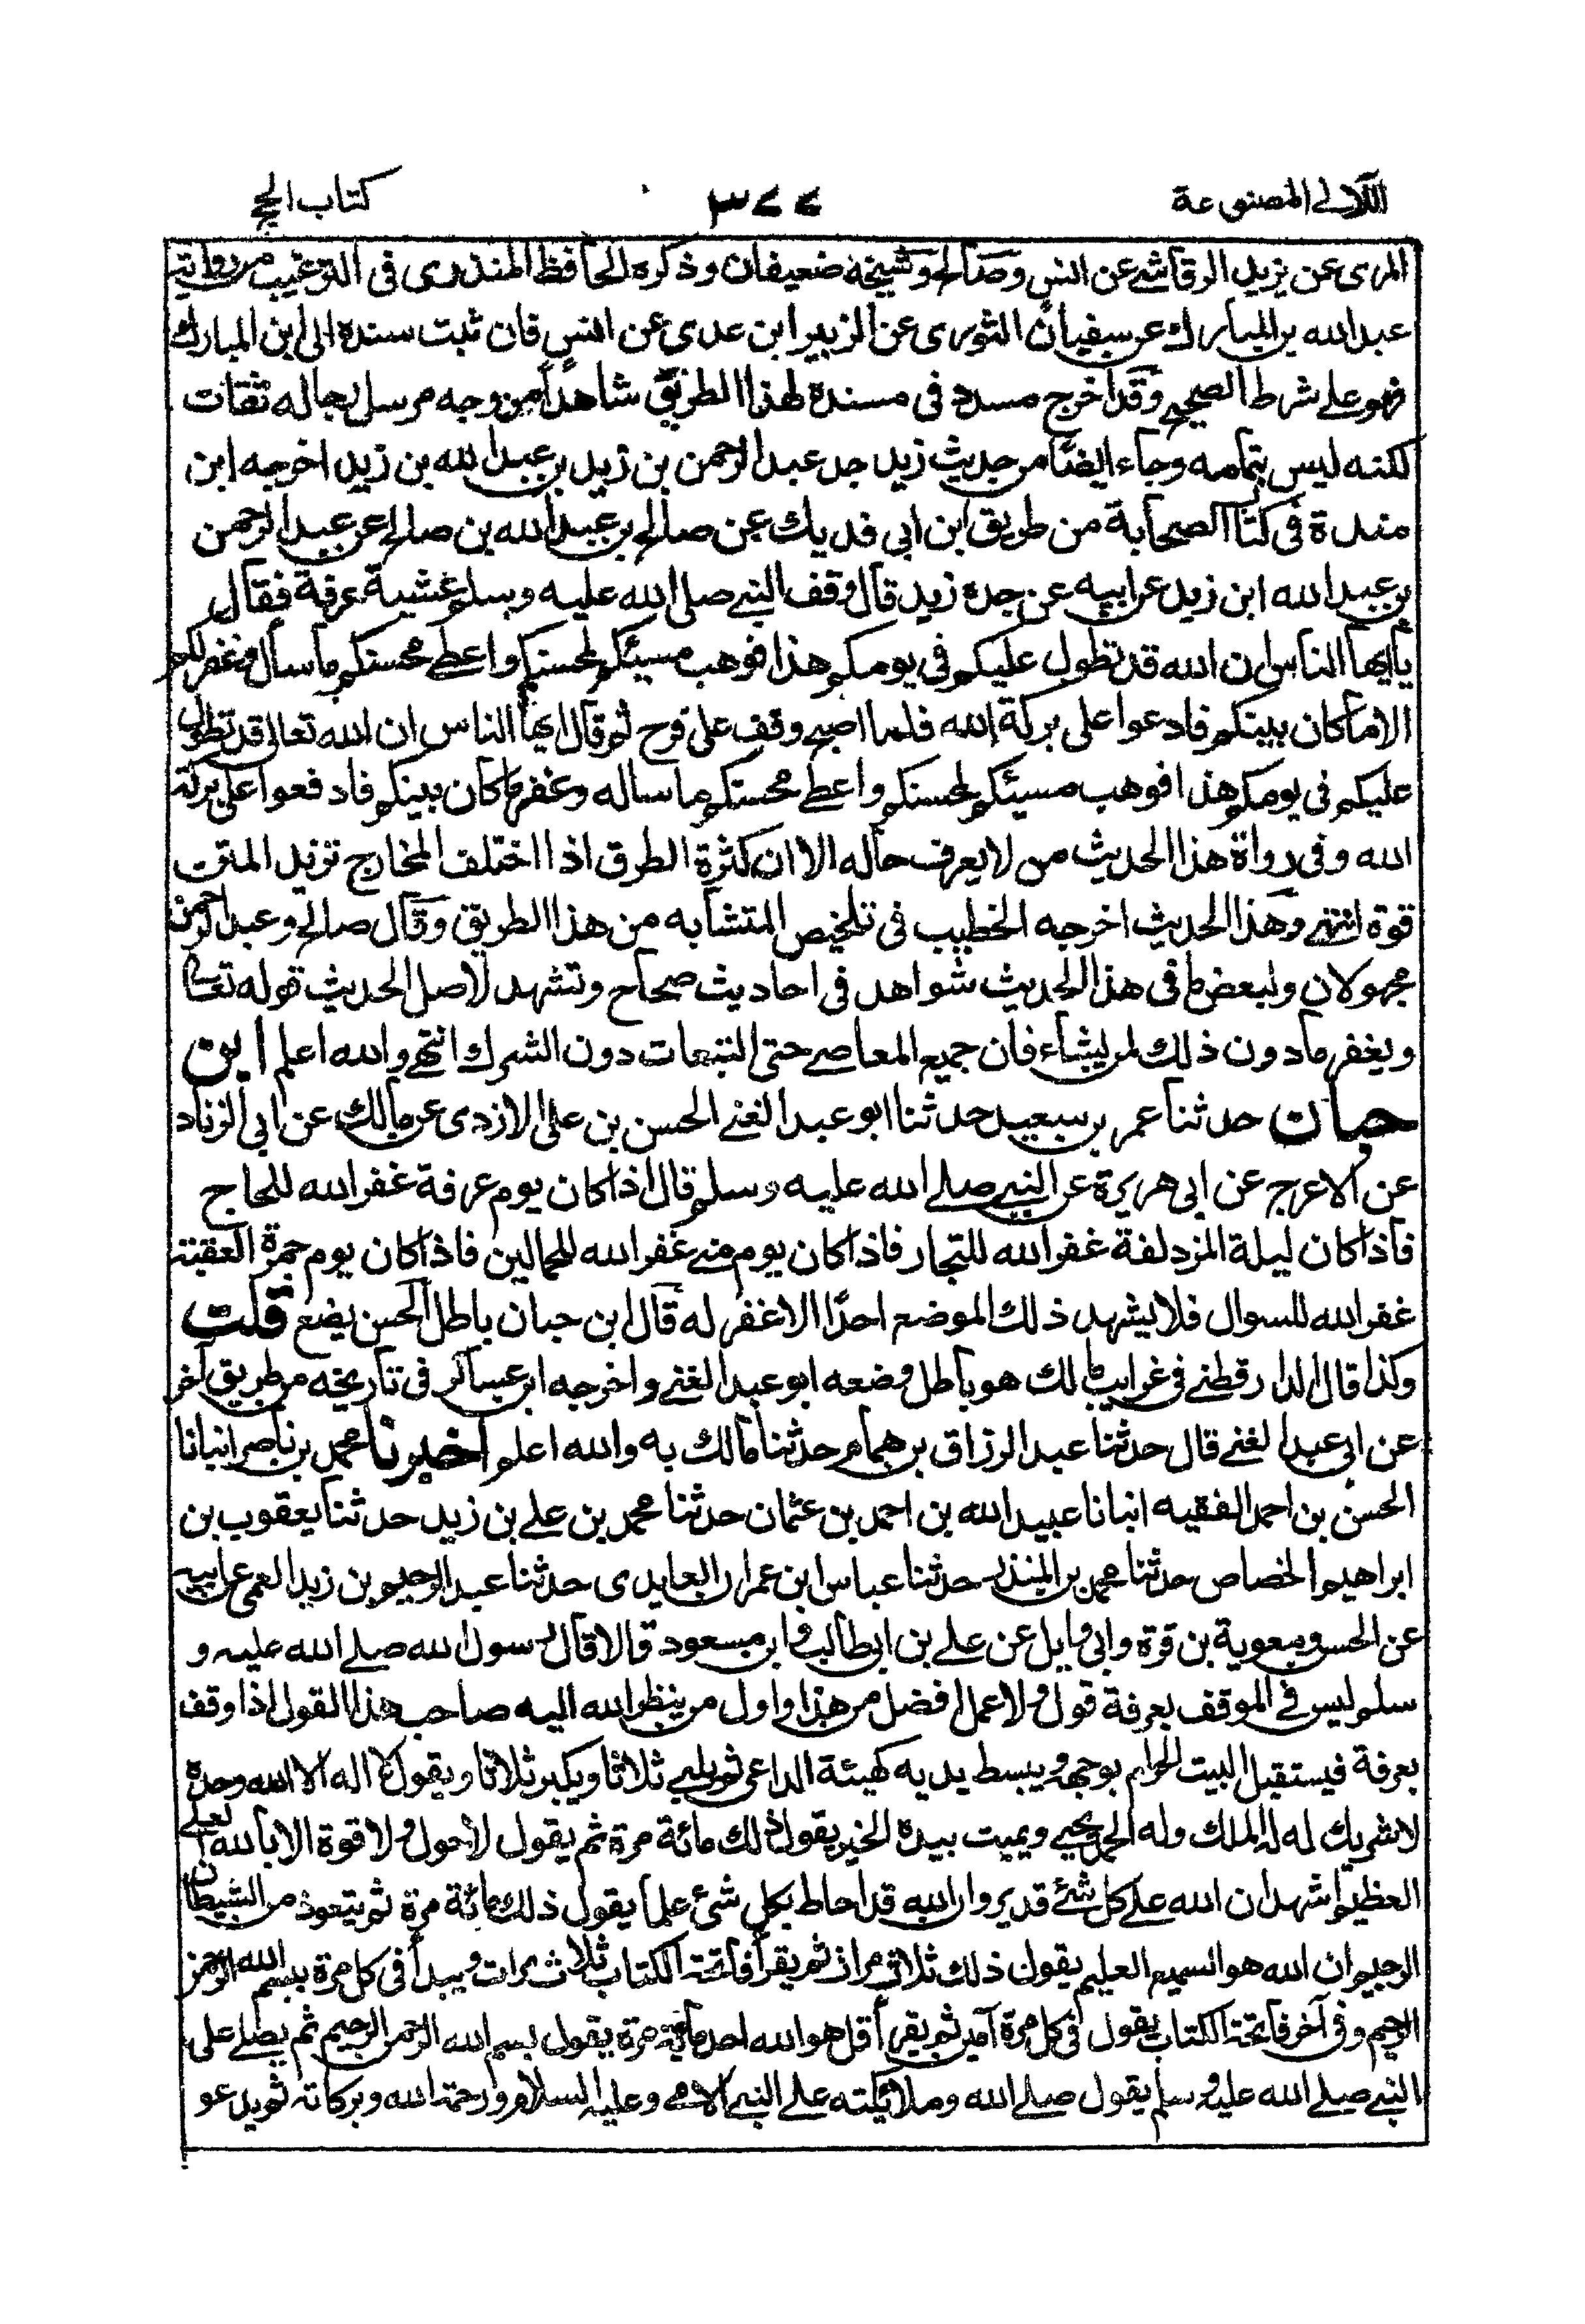 اللآلى المصنوعة
٣٧٧
كتاب الحج
المرى عن يزيد الرقاشے عن انس وصالح وشيخه ضعيفان وذكره الحافظ المنذرى فى الترغيب من رواية
عبد الله بن المبارك عن سفيان الثورى عن الزبير ابن عدى عن انس فان ثبت سنده الى ابن المبارك
فهو على شرط الصحيح وقد اخرج مسدد فى مسنده لهذا الطريق شاهداً من وجه مرسل رجاله ثقات
لكنه ليس بتمامه وجاء ايضًا من حديث زيد جد عبد الرحمن بن زيد بن عبد الله بن زيد اخرجه ابن
مندة فى كتاب الصحابة من طريق ابن ابى فديك عن صالح بن عبد الله بن صالح عن عبد الرحمن
بن عبد الله ابن زيد عن ابيه عن جده زيد قال وقف النبے صلى الله عليه وسلم عشية عرفة فقال
يا ايها الناس ان الله قد تطول عليكم فى يومكم هذا فوهب مسيئكم لمحسنكم واعطے محسنكم ما سأل وغفر لكم
الا ما كان بينكم فادعوا على بركة الله فلما اصبح وقف على قزح ثم قال ايها الناس ان الله تعالى قد تطول
عليكم فى يومكم هذا فوهب مسيئكم لمحسنكم واعطے محسنكم ما ساله وغفر ما كان بينكم فادفعوا على بركة
الله وفى رواة هذا الحديث من لا يعرف حاله الا ان كثرة الطرق اذا اختلف المخارج تزيد المتن
قوة انتهى وهذا الحديث اخرجه الخطيب فى تلخيص المتشابه من هذا الطريق وقال صالح وعبد الرحمن
مجهولان ولبعض ما فى هذا الحديث شواهد فى احاديث صحاح وتشهد لاصل الحديث قوله تعالى
ويغفر ما دون ذلك لمن يشاء فان جميع المعاصے حتى التبعات دون الشرك انتهى والله اعلم ابن
حبان حدثنا عمر بن سعيد حدثنا ابو عبد الغنے الحسن بن على الازدى عن مالك عن ابى الزناد
عن الاعرج عن ابى هريرة عن النبے صلے الله عليه وسلم قال اذا كان يوم عرفة غفر الله للحاج
فاذا كان ليلة المزدلفة غفر الله للتجار فاذا كان يوم منے غفر الله للجمالين فاذا كان يوم جمرة العقبة
غفر الله للسوال فلا يشهد ذلك الموضع احدًا الا غفر له قال ابن حبان باطل الحسن يضع قلت
وكذا قال الدارقطنے فى غرايب مالك هو باطل وضعه ابو عبد الغنے واخرجه ابن عساكر فى تاريخه من طريق آخر
عن ابى عبد الغنے قال حدثنا عبد الرزاق بن همام حدثنا مالك به والله اعلم اخبرنا محمد بن ناصر انبانا
الحسن بن احمد الفقيه انبانا عبيد الله بن احمد بن عثمان حدثنا محمد بن علے بن زيد حدثنا يعقوب بن
ابراهيم الخصاص حدثنا محمد بن المنذر حدثنا عباس ابن عمران العابدى حدثنا عبد الرحيم بن زيد العمى عن ابيه
عن الحسن ومعوية بن قرة وابى وايل عن علے بن ابى طالب وابن مسعود قالا قال رسول الله صلے الله عليه و
سلم ليس فى الموقف بعرفة قول ولا عمل افضل من هذا واول من ينظر الله اليه صاحب هذا القول اذا وقف
بعرفة فيستقبل البيت الحرام بوجهه ويبسط يديه كهيئة الداعى ثم يلبے ثلاثا ويكبر ثلاثا ويقول لا اله الا الله وحده
لا شريك له له الملك وله الحمد يحيے ويميت بيده الخير يقول ذلك مائة مرة ثم يقول لا حول ولا قوة الا بالله العلے
العظيم اشهد ان الله علے كل شئ قدير وان الله قد احاط بكل شئ علما يقول ذلك مائة مرة ثم يتعوذ من الشيطان
الرجيم ان الله هو السميع العليم يقول ذلك ثلاث مرات ثم يقرأ فاتحة الكتاب ثلاث مرات ويبدأ فى كل مرة ببسم الله الرحمن
الرحيم وفى آخر فاتحة الكتاب يقول فى كل مرة آمين ثم يقرأ قل هو الله احد مائة مرة يقول بسم الله الرحمن الرحيم ثم يصلے على
النبے صلے الله عليه وسلم يقول صلے الله وملائكته علے النبے الامے وعليه السلام ورحمة الله وبركاته ثم يدعو